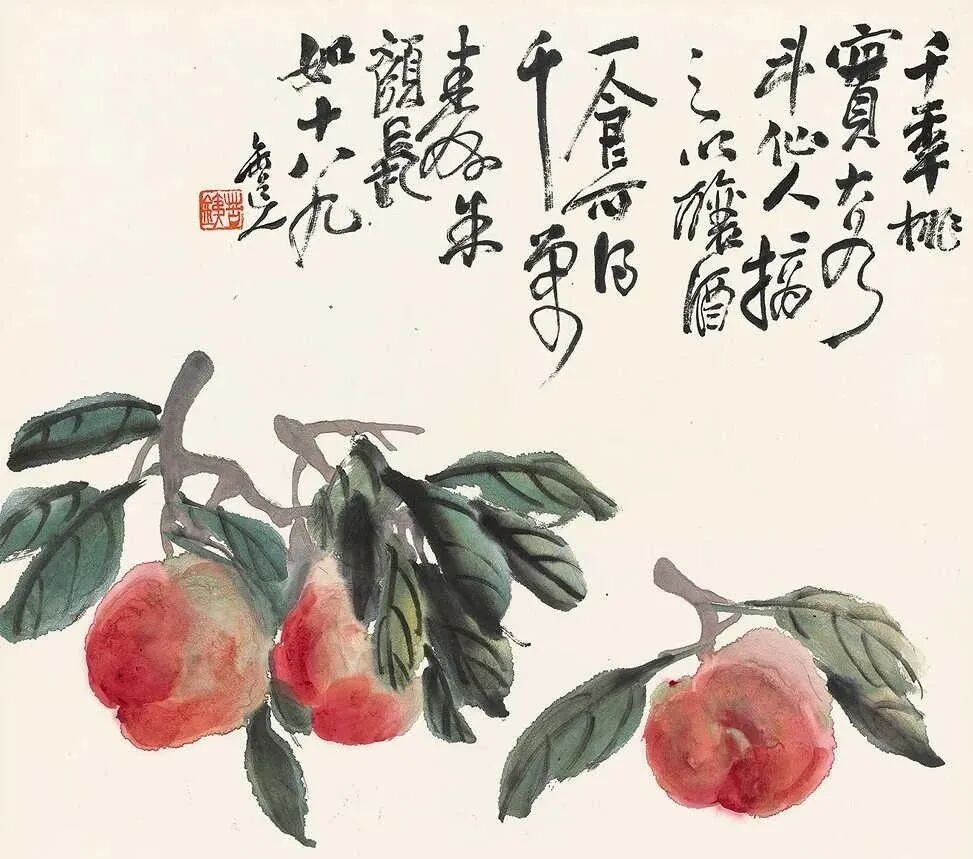 千年桃
實大
斗仙人摘
之以釀酒
一食可得
千萬
壽朱
顏長
如十八九
苦鐵